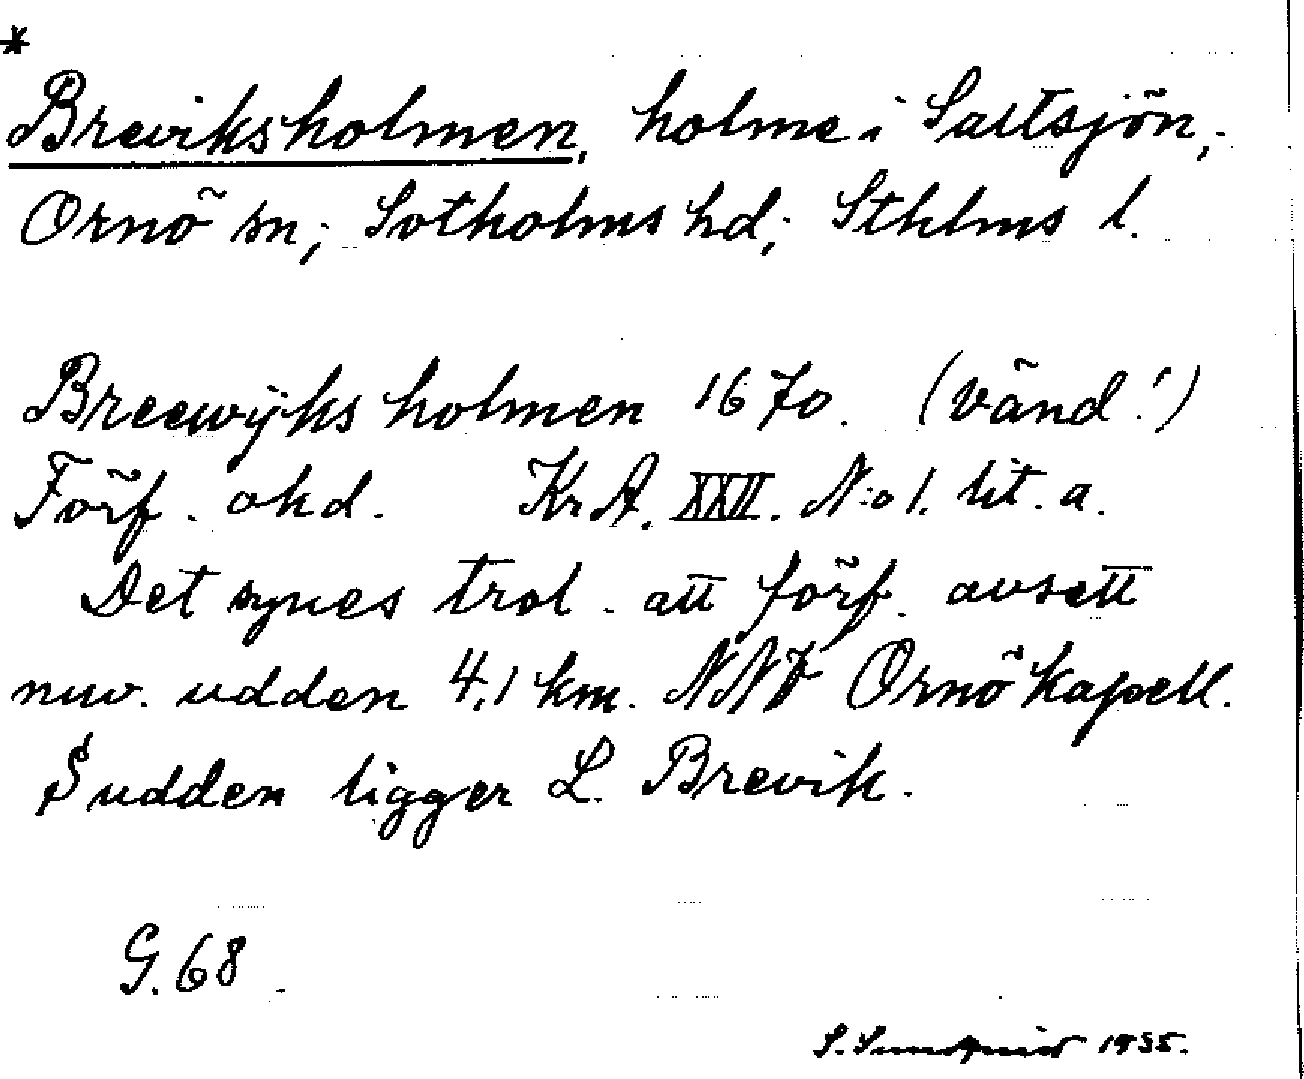 *
Breviksholmen, holme i Saltsjön,
Ornö sn; Sotholms hd; Sthlms l.
Breewÿks holmen 1670. (vänd!)
Förf. okd. KrA. XXII. N:o 1. lit. a.
Det synes trol. att förf. avsett
nuv. udden 4,1 km. NNV Ornö kapell.
S udden ligger L. Brevik.
G. 68
S. Sundqvist 1935.